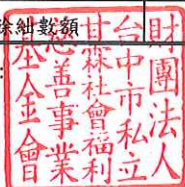 餘絀數額
：
財團法人
台中市私立
甘霖社會福利
慈善事業
基金會